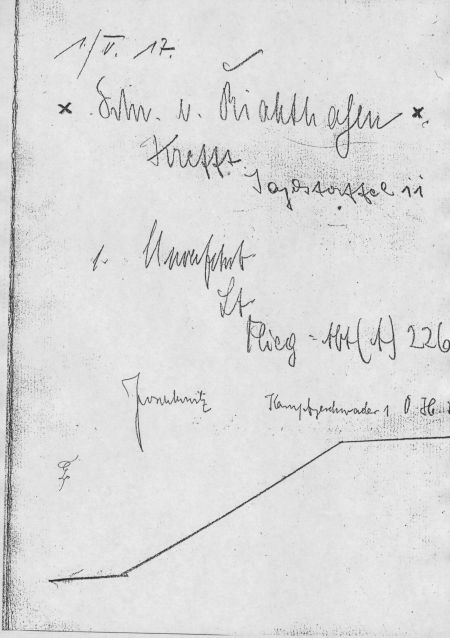 1./V. 17.
× Frhr. v. Richthofen ×
Krefft
Jagdstaffel 11
1.
Lt.
Flieg = Abt (A) 226
Kampfgeschwader 1 O. H.